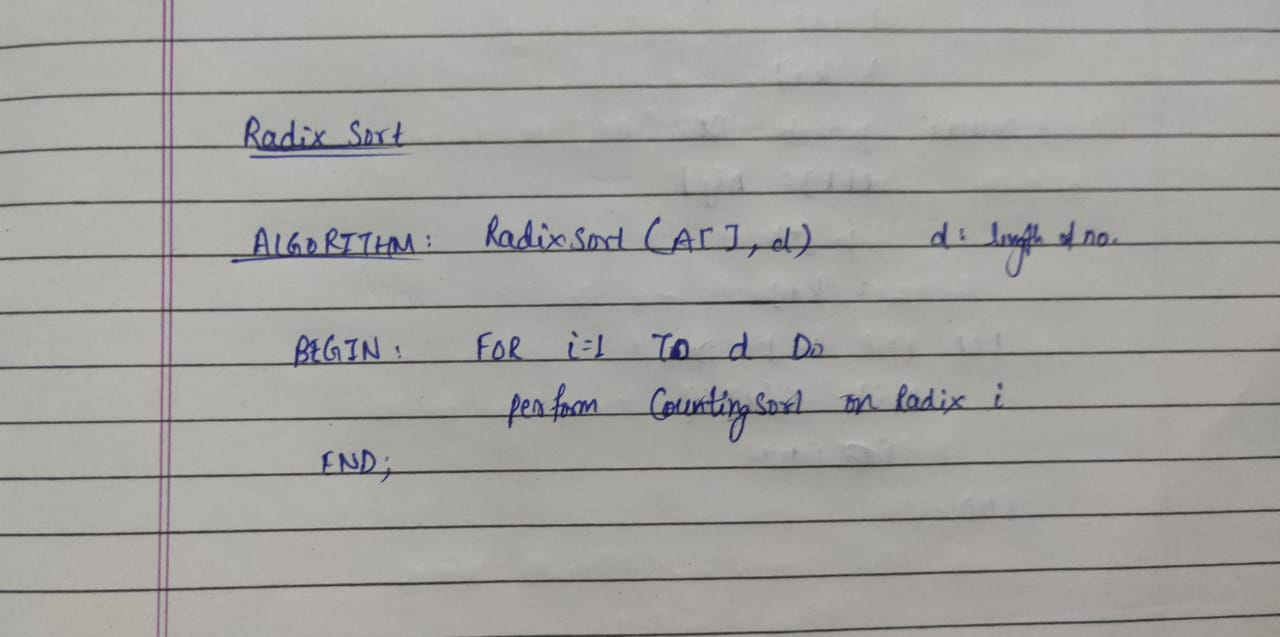 Radix Sort
ALGORITHM: Radix Sort (A[ ], d) d: length of no.
BEGIN: FOR i=1 TO d Do
perform Counting Sort on Radix i
END;